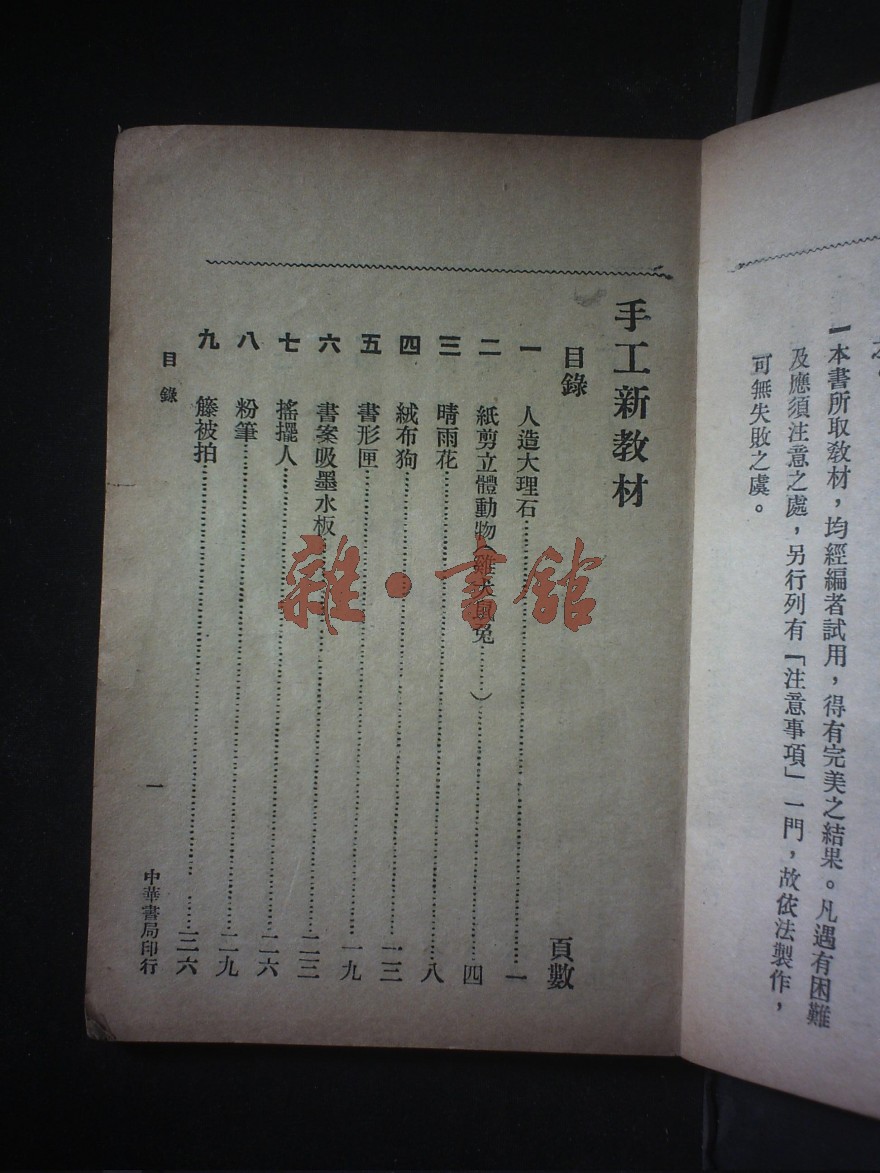 一本書所取教材，均經編者試用，得有完美之結果。凡遇有困難
及應須注意之處，另行列有「注意事項」一門，故依法製作，
可無失敗之虞。
手工新教材
目錄 頁數
一 人造大理石……一
二 紙剪立體動物（雞犬兔……）四
三 晴雨花……八
四 絨布狗……一三
五 書形匣……一九
六 書案吸墨水板……二三
七 搖擺人……二六
八 粉筆……二九
九 籐被拍……三六
目錄 一 中華書局印行
雜·書館